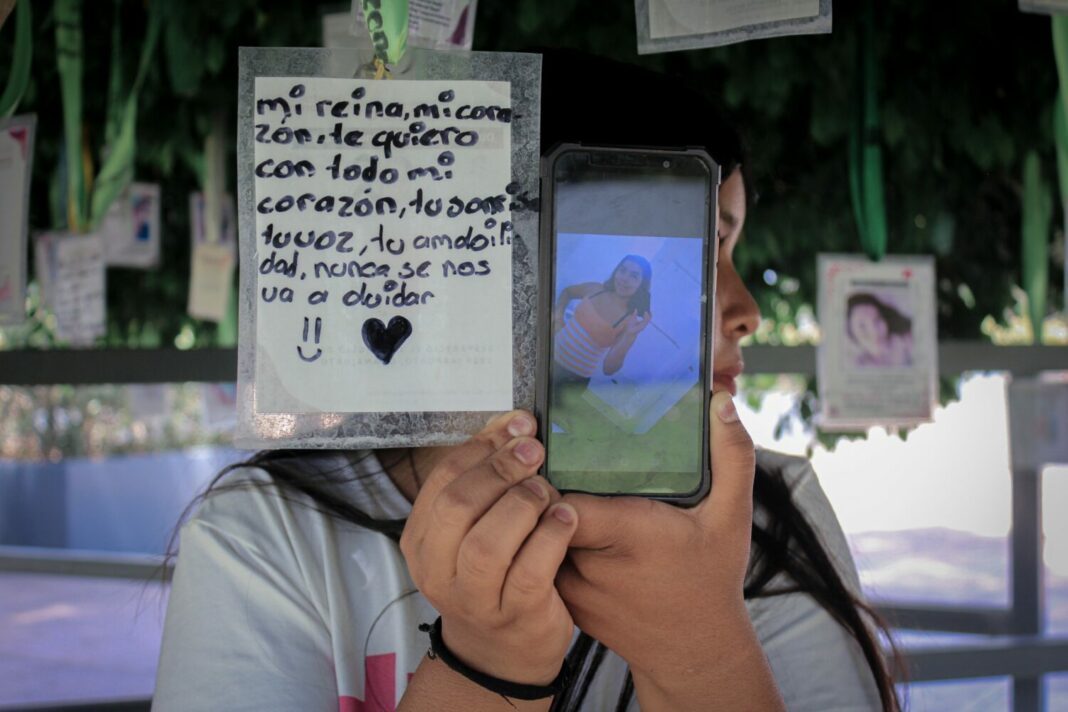 mi reina, mi cora-
zón, te quiero
con todo mi
corazón, tu sonris
tu voz, tu amabili
dad, nunca se nos
va a olvidar